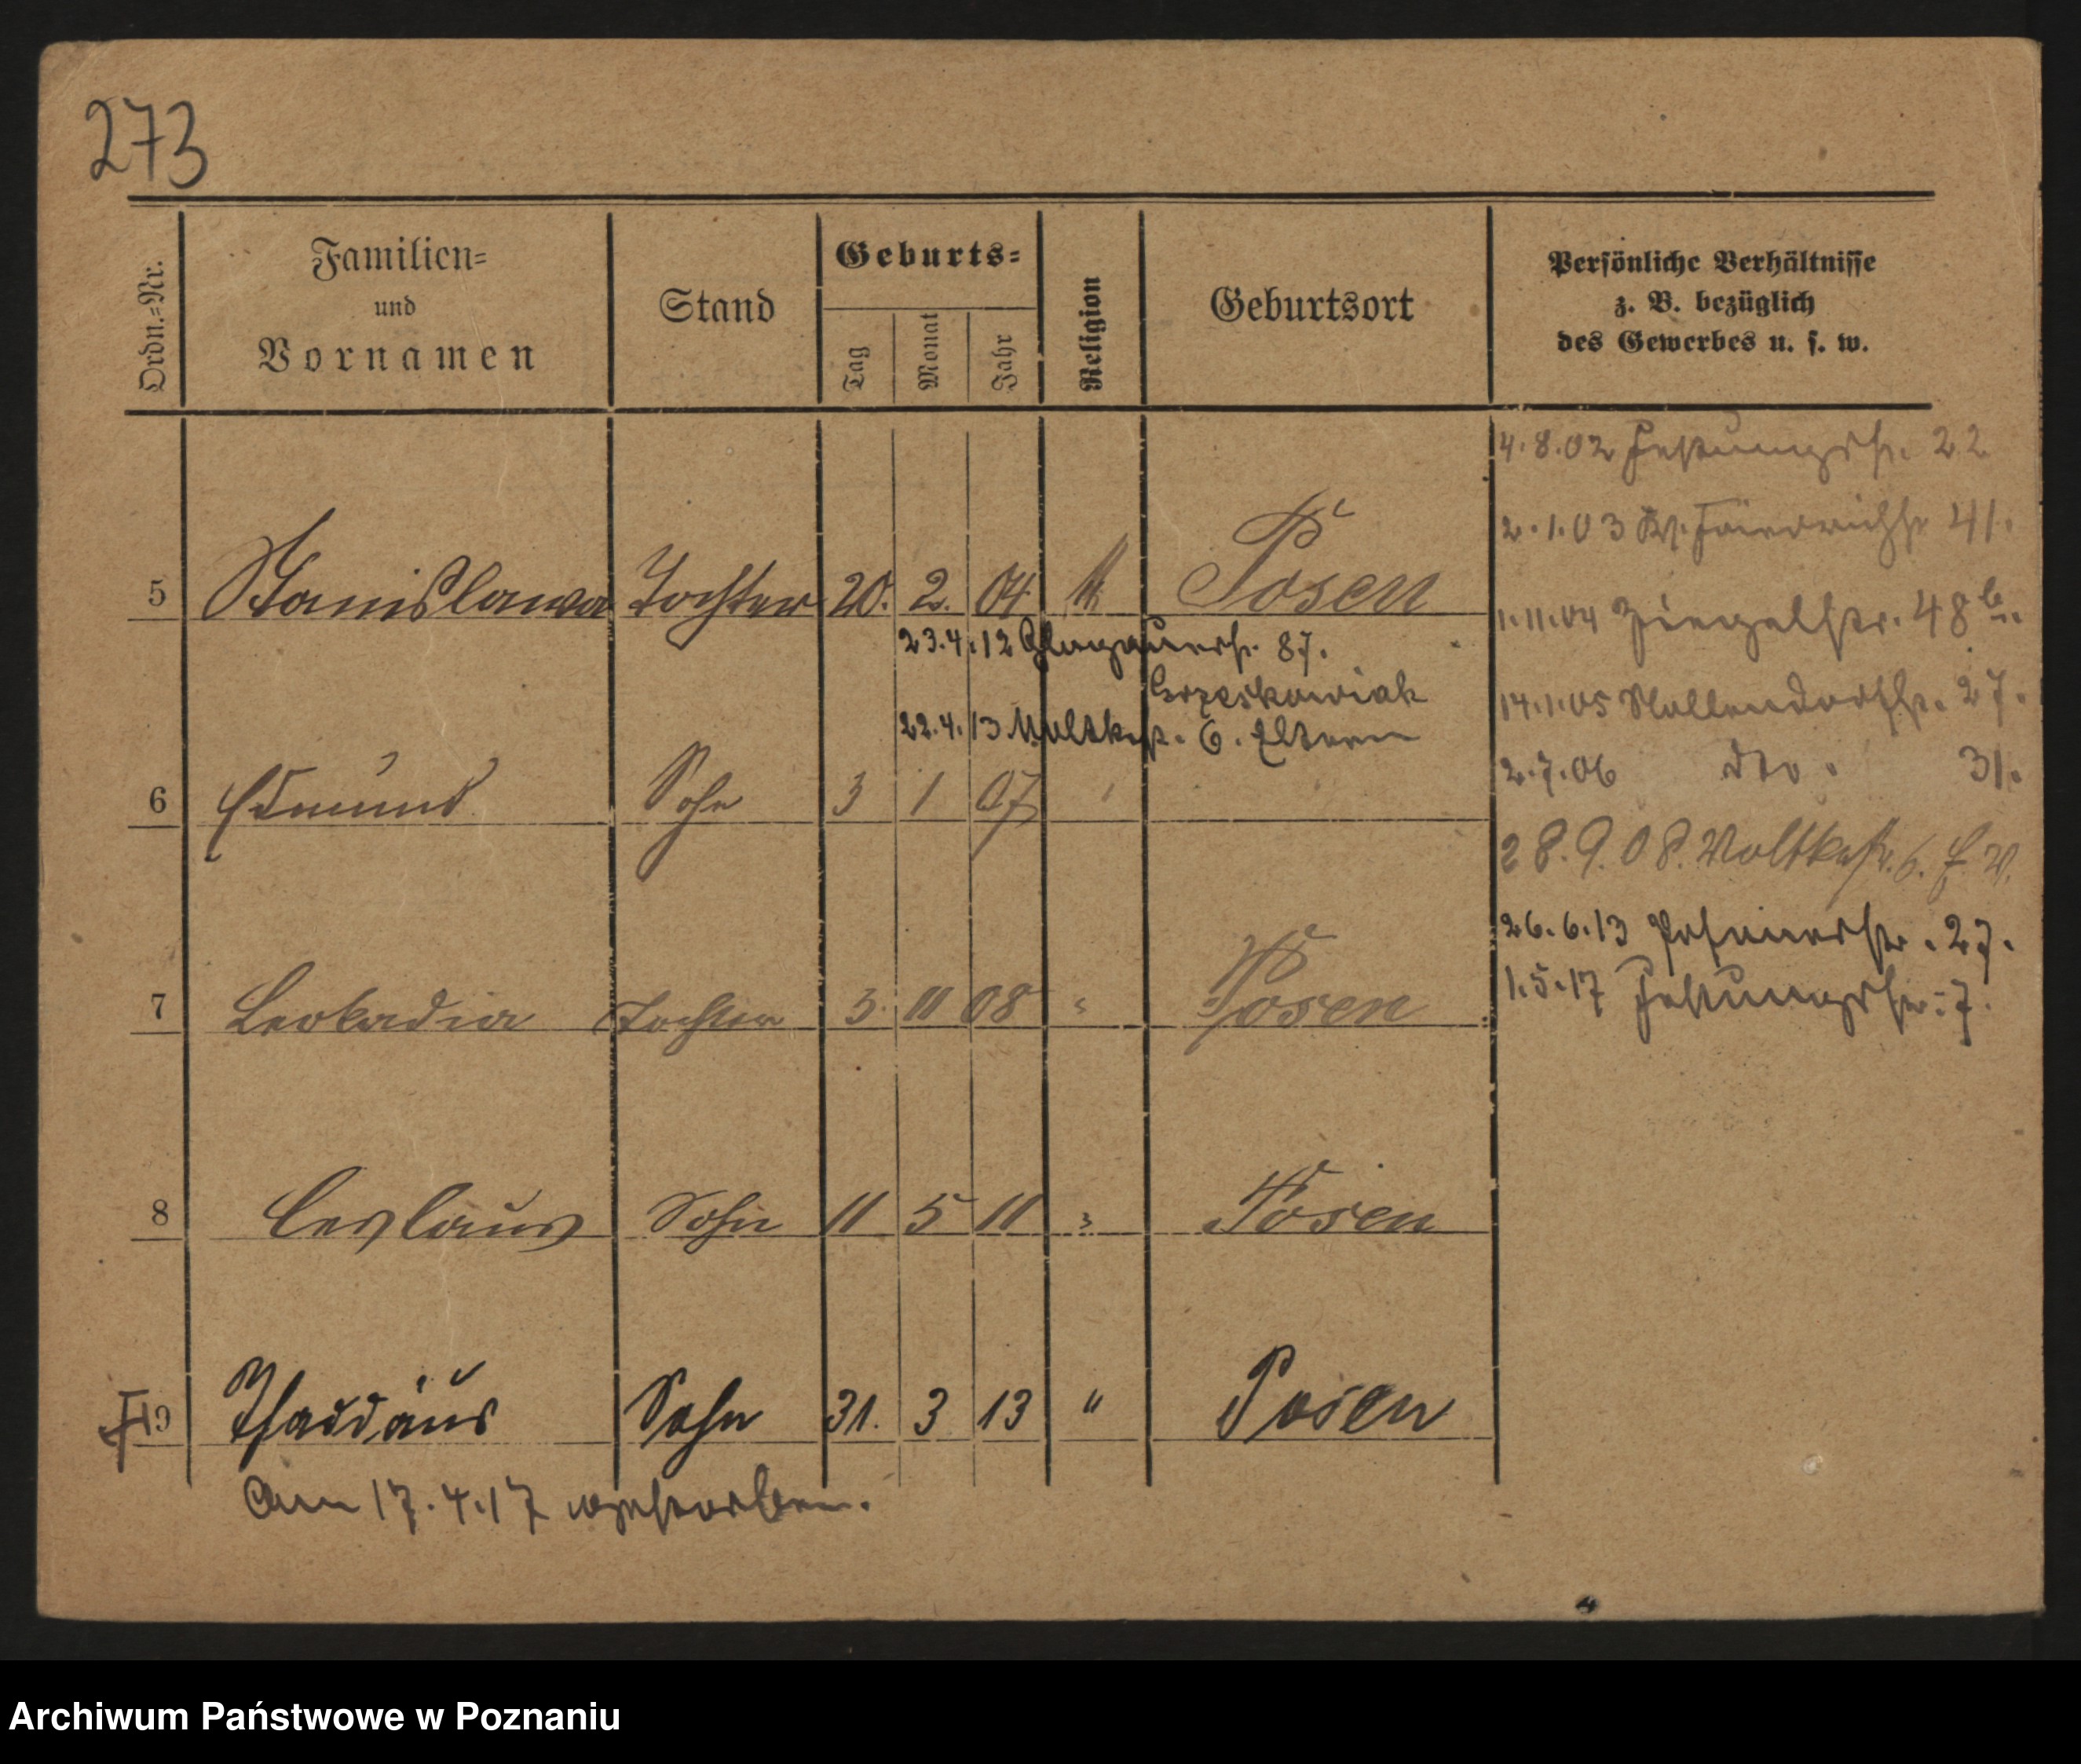 273
Ordn.=Nr.
Familien=
und
Vornamen
Stand
Geburts=
Tag
Monat
Jahr
Religion
Geburtsort
Persönliche Verhältnisse
z. B. bezüglich
des Gewerbes u. s. w.
4.8.02 Festungsstr. 22
2.1.03 Friedrichstr 41.
5 Stanislawa Tochter 20. 2. 04 Posen
1.11.04 Ziegelstr. 48
23.4.12 Glogauerstr. 87.
Grzeskowiak
14.1.05 27.
22.4.13 Moltkestr. 6. Eltern
2.7.06 dto. 31.
6 Edmund Sohn 3 1 07
28.9.08. Moltkestr. 6.
26.6.13 Posenerstr. 27.
1.5.17 Festungsstr. 7.
7 Leokadia Tochter 3 11 08 " Posen
8 Ceslaus Sohn 11 5 11 " Posen
9 Thaddäus Sohn 31. 3 13 " Posen
Am 17.4.17 gestorben.
Archiwum Państwowe w Poznaniu